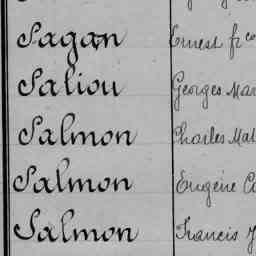 Sagan Ernest fr
Saliou Georges Mar
Salmon Charles Mat
Salmon Eugène
Salmon Francis